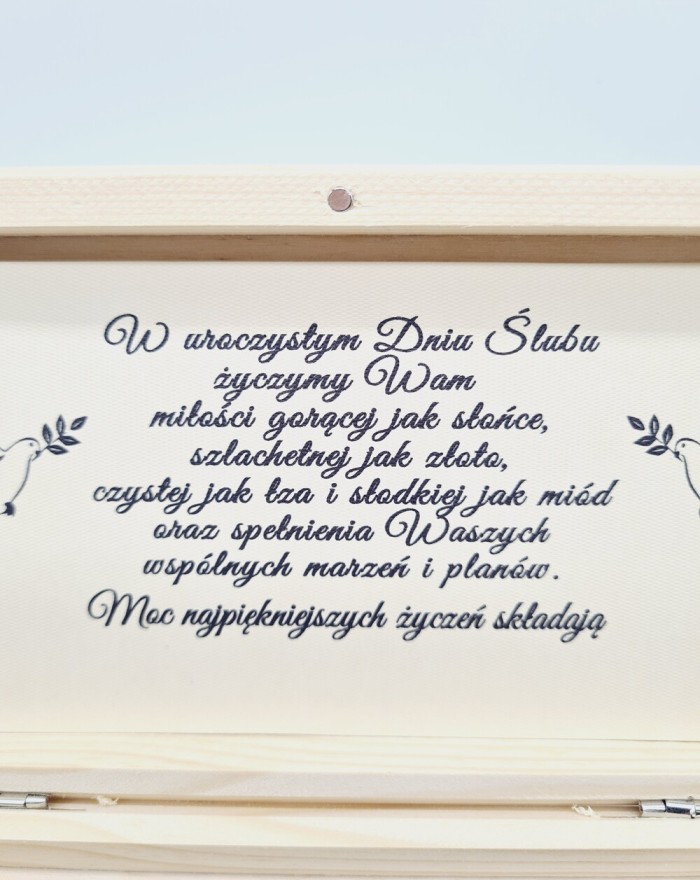 W uroczystym Dniu Ślubu
życzymy Wam
miłości gorącej jak słońce,
szlachetnej jak złoto,
czystej jak łza i słodkiej jak miód
oraz spełnienia Waszych
wspólnych marzeń i planów.
Moc najpiękniejszych życzeń składają